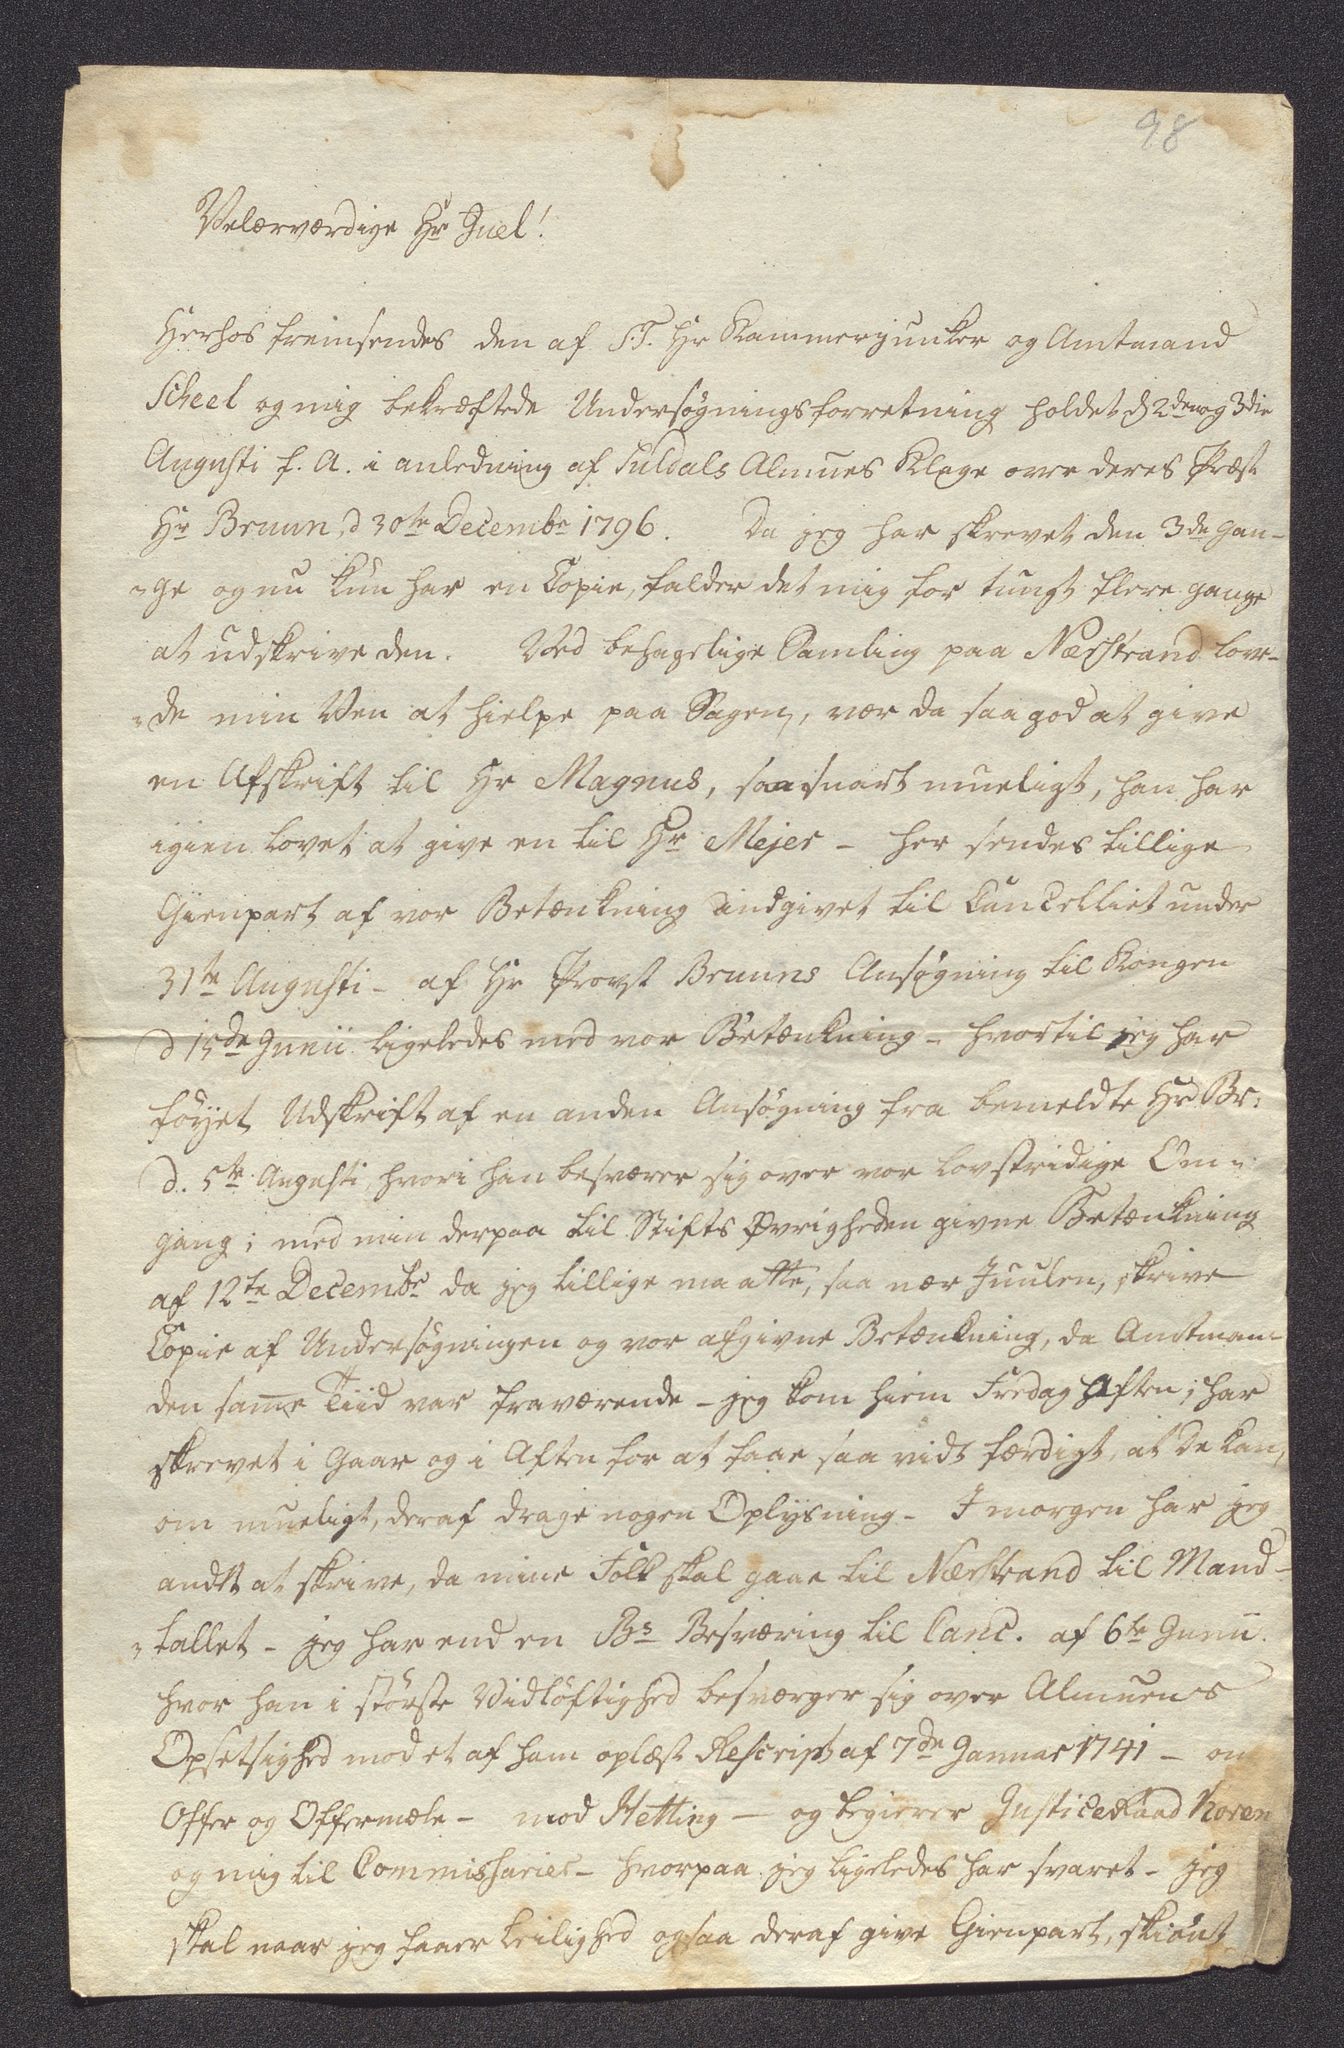 98
Velærværdige Hr Juel!
Herhos fremsendes den af S.T. Hr Kammerjunker og Amtmand
Scheel og mig bekræftede Undersøgningsforretning holdet d 2den og 3die
Augusti f. A. i anledning af Suldals Almues Klage over deres Præst
Hr Bruun, d 30te Decembr 1796. Da jeg har skrevet den 3de Gan-
-ge og nu kun har en Copie, falder det mig for tungt flere gange
at udskrive den. Ved behagelige Samling paa Nærstrand love-
-de min Ven at hielpe paa Sagen, vær da saa god at give
en Afskrift til Hr Magnus, saa snart mueligt, han har
igien lovet at give en til Hr Mejer - her sendes tillige
Gienpart af vor Betænkning indgivet til Cancelliet under
31te Augusti - af Hr Provst Bruuns Ansøgning til Kongen
d 15de Junii ligeledes med vor Betænkning - hvortil jeg har
føyet Udskrift af en anden Ansøgning fra bemeldte Hr Br:
d. 5te Augusti, hvori han besværer sig over vor lovstridige Om-
gang; med min derpaa til Stifts Øvrigheden givne Betænkning
af 12te Decembr da jeg tillige maatte, saa nær Juulen, skrive
Copie af Undersøgningen og vor afgivne Betænkning, da Amtman-
den samme Tiid var fraværende - jeg kom hiem Fredag Aften; har
skrevet i Gaar og i Aften for at faae saa vidt færdigt, at De kan,
om mueligt, deraf drage nogen Oplysning - I morgen har jeg
andet at skrive, da mine Folk skal gaae til Nærstrand til Mand-
-tallet - jeg har end en Bs Besværing til Canc. af 6te Junii
hvor han i største Vidløftighed besværger sig over Almuens
Opsetsighed mod et af ham oplæst Rescript af 7de Januar 1741 - om
Offer og Offermæle - mod Hetting - og begierer Justice Raad Koren
og mig til Commissarier - hvorpaa jeg ligeledes har svaret - jeg
skal naar jeg faaer Leilighed ogsaa deraf give Gienpart, skiønt